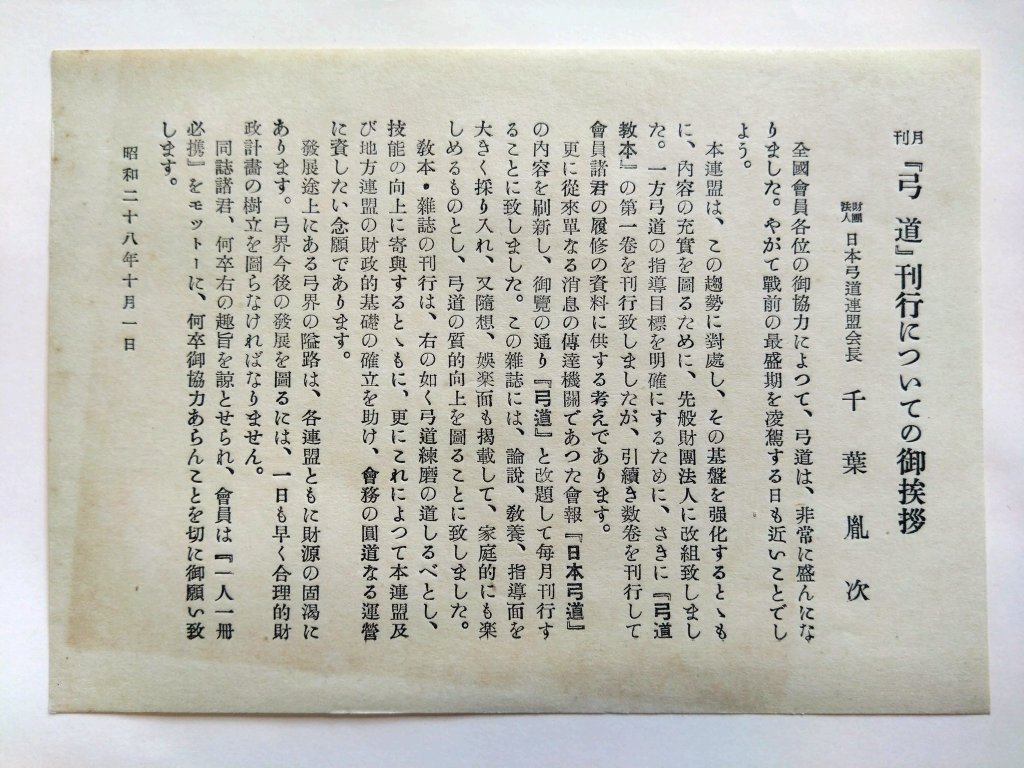 月刊『弓道』刊行についての御挨拶
財團法人 日本弓道連盟会長 千葉胤次
全國會員各位の御協力によつて、弓道は、非常に盛んにな
りました。やがて戰前の最盛期を凌駕する日も近いことでし
よう。
本連盟は、この趨勢に對處し、その基盤を强化するとゝも
に、內容の充實を圖るために、先般財團法人に改組致しまし
た。一方弓道の指導目標を明確にするために、さきに『弓道
教本』の第一卷を刊行致しましたが、引續き数卷を刊行して
會員諸君の履修の資料に供する考えであります。
更に從來單なる消息の傳達機關であつた會報『日本弓道』
の內容を刷新し、御覽の通り『弓道』と改題して每月刊行す
ることに致しました。この雜誌には、論說、敎養、指導面を
大きく採り入れ、又隨想、娯楽面も揭載して、家庭的にも楽
しめるものとし、弓道の質的向上を圖ることに致しました。
敎本・雜誌の刊行は、右の如く弓道練磨の道しるべとし、
技能の向上に寄與するとゝもに、更にこれによつて本連盟及
び地方連盟の財政的基礎の確立を助け、會務の圓道なる運營
に資したい念願であります。
發展途上にある弓界の隘路は、各連盟ともに財源の固渴に
あります。弓界今後の發展を圖るには、一日も早く合理的財
政計畫の樹立を圖らなければなりません。
同誌諸君、何卒右の趣旨を諒とせられ、會員は『一人一册
必携』をモットーに、何卒御協力あらんことを切に御願い致
します。
昭和二十八年十月一日